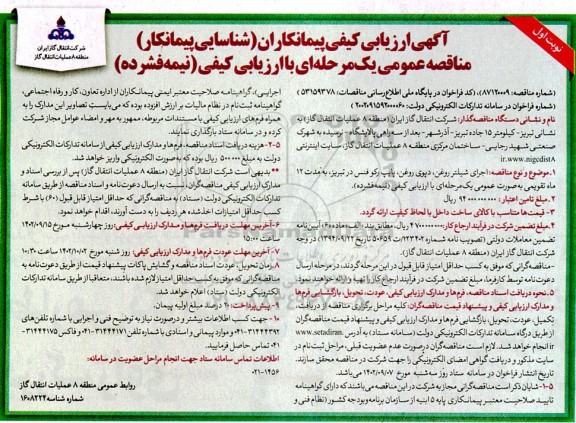 نوبت اول
شرکت انتقال گاز ایران
منطقه ۸ عملیات انتقال گاز
آگهی ارزیابی کیفی پیمانکاران (شناسایی پیمانکار)
مناقصه عمومی یک مرحله‌ای با ارزیابی کیفی (نیمه فشرده)
(شماره مناقصه: ۸۷۱۲۰۰۰۹)، (کد فراخوان در پایگاه ملی اطلاع‌رسانی مناقصات: ۵۳۱۵۹۳۷۸)
(شماره فراخوان در سامانه تدارکات الکترونیکی دولت: ۲۰۰۲۰۹۱۵۹۲۰۰۰۰۶۰)
نام و نشانی دستگاه مناقصه‌گذار: شرکت انتقال گاز ایران (منطقه ۸ عملیات انتقال گاز) به
نشانی تبریز- کیلومتر ۱۵ جاده تبریز- آذرشهر- بعد از سه‌راهی پالایشگاه - نرسیده به شهرک
صنعتی شهید رجایی- ساختمان مرکزی منطقه ۸ عملیات انتقال گاز- سایت اینترنتی
ir.www.nigcdist8
۱. موضوع و نوع مناقصه: اجرای شیلتر روغن، دپوی روغن، پایپ رکو فنس در تبریز، به مدت ۱۲
ماه تقویمی به‌صورت عمومی یک‌مرحله‌ای با ارزیابی کیفی (نیمه‌فشرده).
۲. مبلغ تامین اعتبار:
۳- قیمت‌ها متناسب با کالای ساخت داخل با لحاظ کیفیت ارائه گردد.
۴. مبلغ تضمین شرکت در فرآیند ارجاع کار:
ریال، مطابق بند الف ماده «۴» آیین‌نامه
تضمین معاملات دولتی (تصویب نامه شماره ۱۲۳۴۰۲/ت ۵۰۶۵۹ تاریخ ۱۳۹۴/۰۹/۲۲) در وجه
شرکت انتقال گاز ایران (منطقه ۸ عملیات انتقال گاز).
-مناقصه‌گرانی که موفق به کسب حداقل امتیاز قابل قبول در این مرحله گردند، در مرحله ارسال
دعوت‌نامه توسط کارفرما، مبلغ تضمین شرکت در فرآیند ارجاع کار را ارائه خواهند نمود.
۵. نحوه دریافت اسناد مناقصه، فرم‌ها و مدارک ارزیابی کیفی، عودت، تحویل، بازگشایی فرم‌ها
و مدارک ارزیابی کیفی و پیشنهاد قیمت مناقصه‌گران: کلیه مراحل برگزاری مناقصه از دریافت،
تکمیل، عودت، تحویل، بازگشایی فرم‌ها و مدارک ارزیابی کیفی و پیشنهاد قیمت مناقصه‌گران
از طریق درگاه سامانه تدارکات الکترونیکی دولت (سامانه ستاد) به آدرس www.setadiran.
ir انجام خواهد شد. لازم است مناقصه‌گران درصورت عدم عضویت قبلی، مراحل ثبت‌نام در
سایت مذکور و دریافت گواهی امضای الکترونیکی را جهت شرکت در مناقصه محقق سازند.
تاریخ انتشار فراخوان در سامانه ستاد روز سه‌شنبه مورخ ۱۴۰۲/۰۹/۰۷ می‌باشد.
۵-۱- شایان ذکر است مناقصه‌گرانی مجاز به شرکت در این مناقصه می‌باشند که دارای گواهینامه
تایید صلاحیت معتبر پیمانکاری پایه ۵ ابنیه از سازمان برنامه و بودجه کشور (نظام فنی و
اجرایی)، گواهینامه صلاحیت معتبر ایمنی پیمانکاران از اداره تعاون، کار و رفاه اجتماعی،
گواهینامه ثبت‌نام در نظام مالیات بر ارزش افزوده بوده که می‌بایست تصاویر این مدارک را به
همراه فرم‌های ارزیابی کیفی با مستندات مربوطه، ممهور به مهر و امضاء عوامل مجاز شرکت
کرده و در سامانه ستاد بارگذاری نمایند.
۵-۲- هزینه دریافت اسناد مناقصه، فرم‌ها و مدارک ارزیابی کیفی از سامانه تدارکات الکترونیکی
دولت به مبلغ ۵۰۰۰۰۰ ریال بوده که به‌صورت الکترونیکی واریز خواهد شد.
** بدیهی است شرکت انتقال گاز ایران (منطقه ۸ عملیات انتقال گاز)، پس از بررسی اسناد و
مدارک ارزیابی کیفی مناقصه‌گران، نسبت به ارسال دعوت‌نامه و اسناد مناقصه از طریق سامانه
تدارکات الکترونیکی دولت (ستاد) به مناقصه‌گرانی که حداقل امتیاز قابل قبول (۶۰) با شرط
کسب حداقل امتیازات اخذشده هر ردیف را به دست آورند، اقدام خواهد نمود.
۶-آخرین مهلت دریافت فرم‌ها و مدارک ارزیابی کیفی: روز چهارشنبه مورخ ۱۴۰۲/۰۹/۱۵
ساعت ۱۵:۰۰
۷-آخرین مهلت عودت فرم‌ها و مدارک ارزیابی کیفی: روز شنبه مورخ ۱۴۰۲/۱۰/۰۲ ۱۰:۳۰
۸. زمان تحویل، عودت اسناد مناقصه و گشایش پاکات پیشنهاد قیمت از طریق دعوت‌نامه به
مناقصه‌گرانی که موفق به کسب حداقل امتیاز لازم شده باشند، متعاقبا از طریق سامانه تدارکات
الکترونیکی دولت (ستاد) اعلام خواهد شد.
۹. پیش‌پرداخت: ۲۰ درصد مبلغ اولیه پیمان.
۱۰- جهت کسب اطلاعات بیشتر و درصورت نیاز به توضیح فنی و اجرایی با شماره تلفن‌های
۳۱۴۴۴۳۹۲-۰۴۱ و موارد پیمانی و اسنادی با شماره تلفن ۳۱۴۴۴۱۷۱-۰۴۱ و فاکس ۳۱۴۴۴۱۷۵-
۰۴۱ تماس حاصل فرمایید.
اطلاعات تماس سامانه ستاد جهت انجام مراحل عضویت در سامانه:
۰۲۱-۱۴۵۶
روابط عمومی منطقه ۸ عملیات انتقال گاز
شماره شناسه ۱۶۰۸۲۲۴